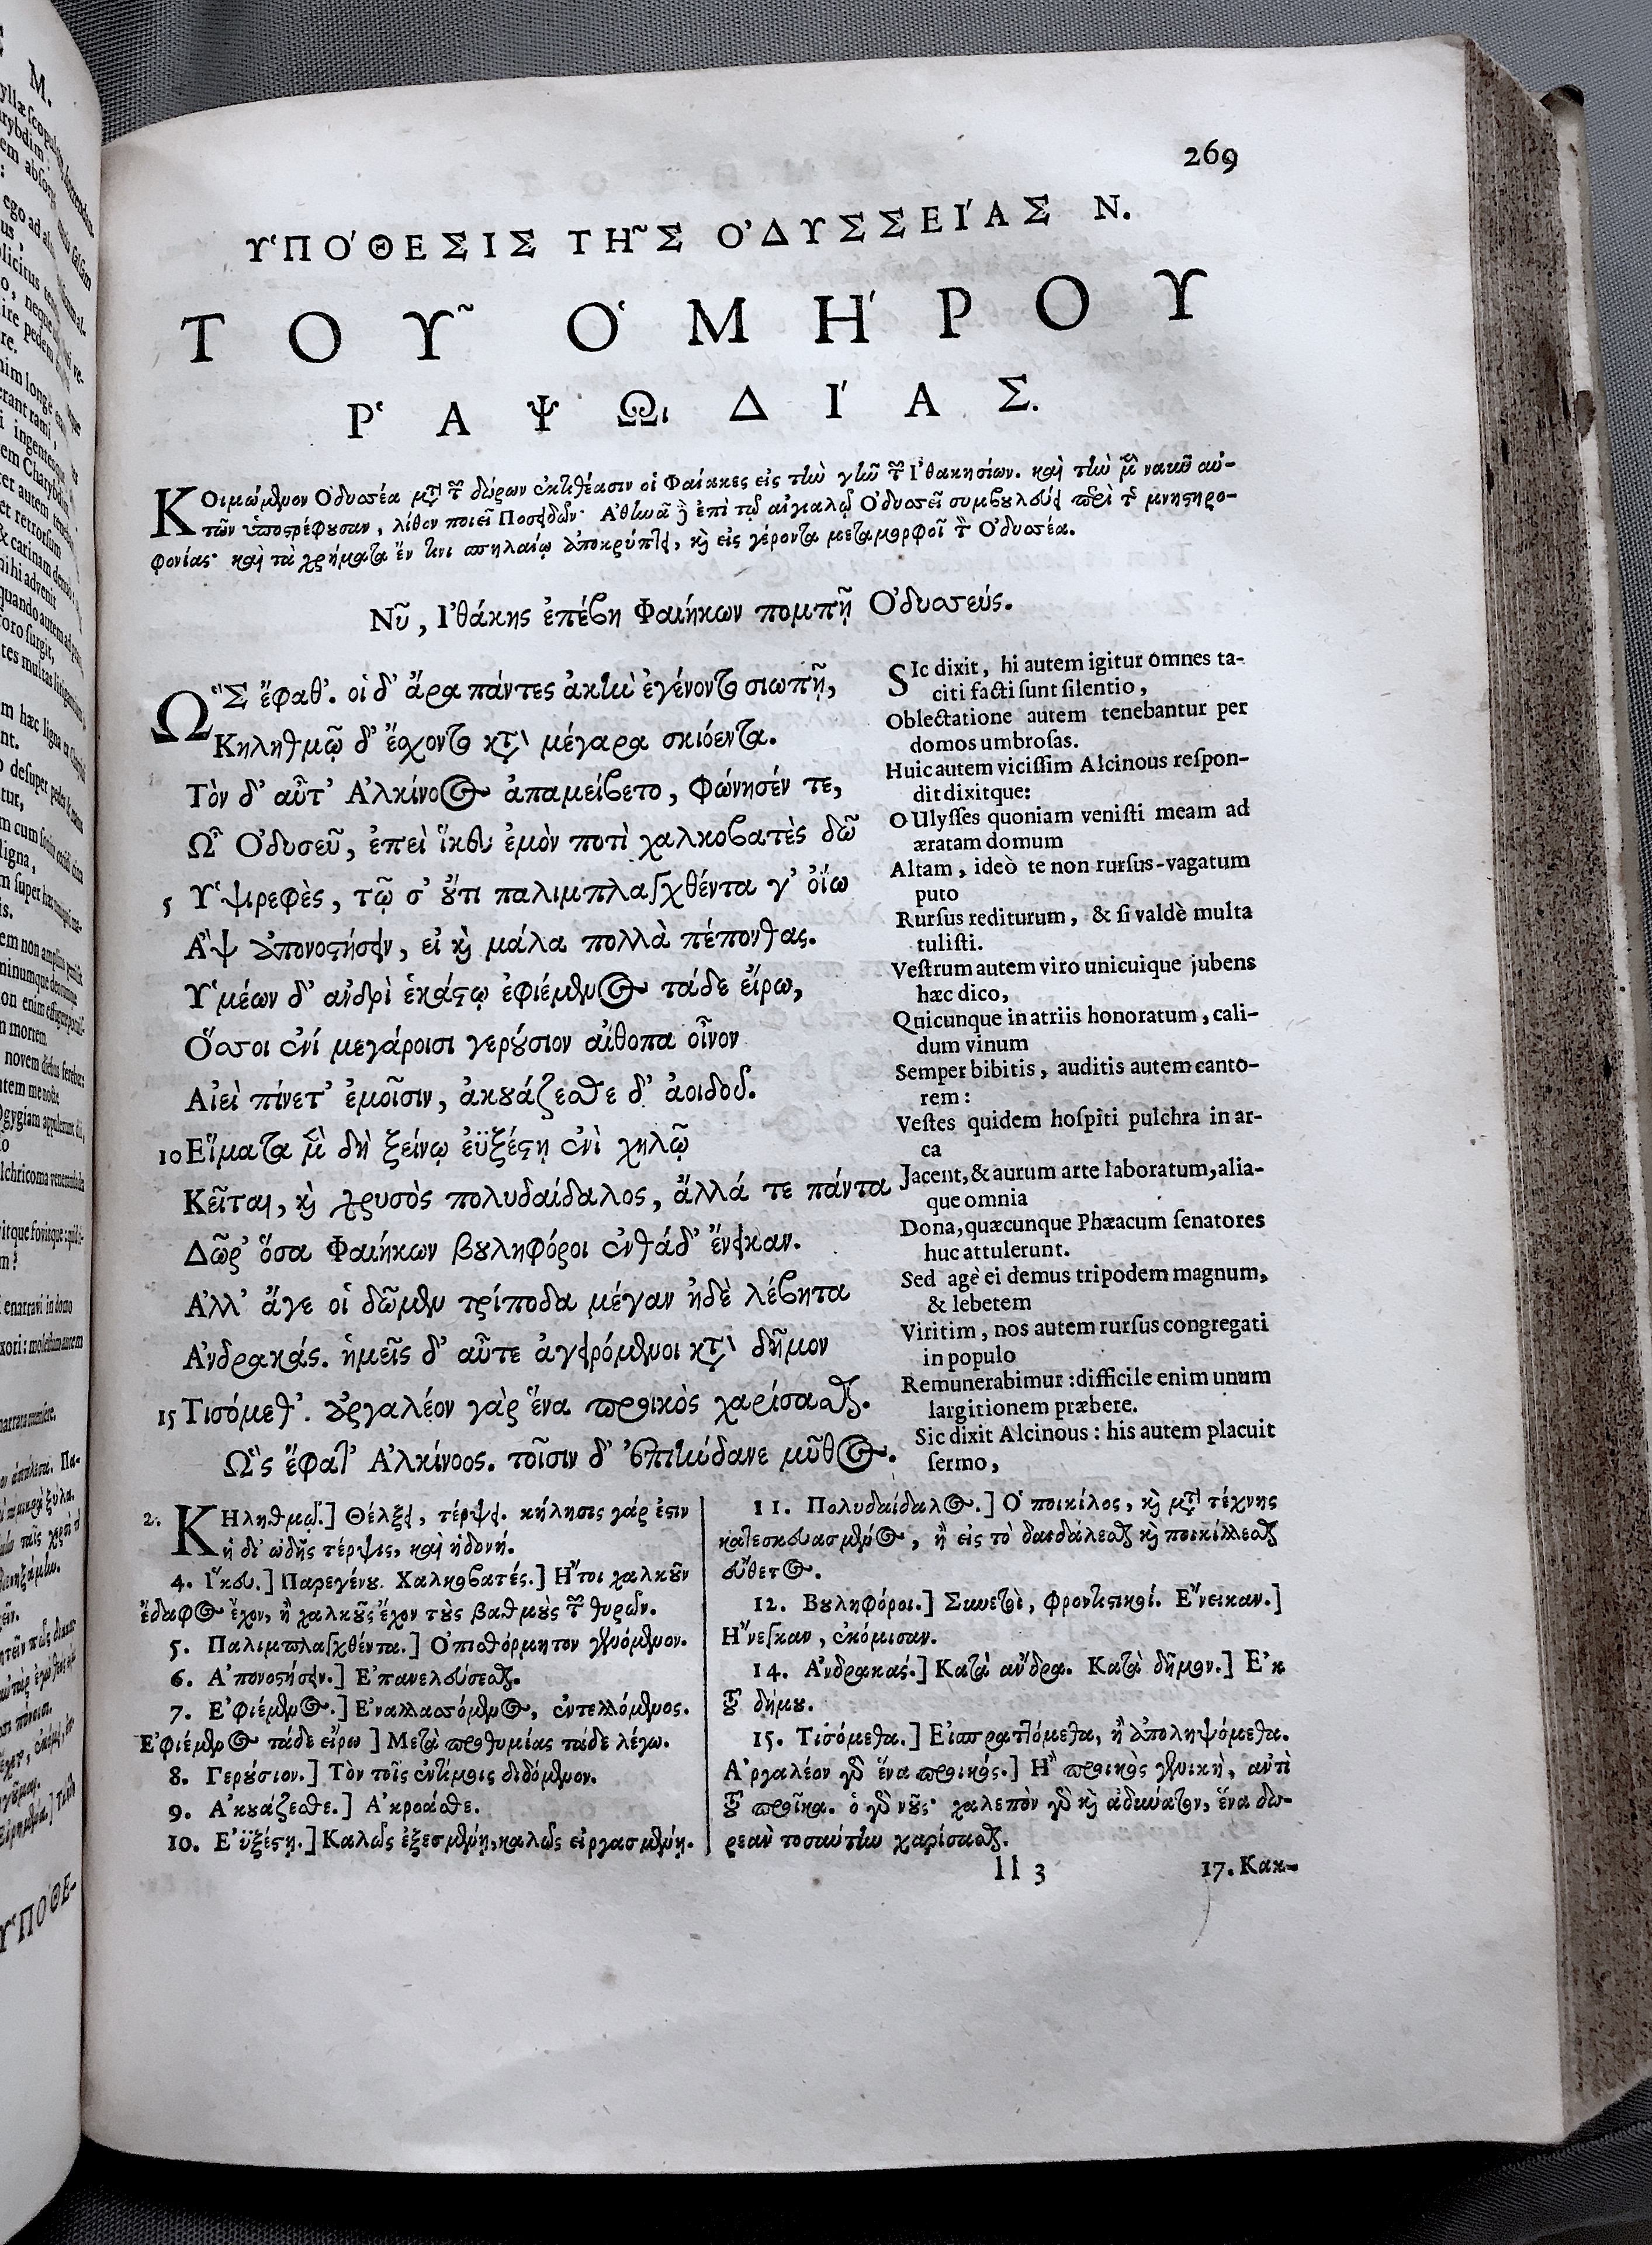 269
ΥΠΟ´ΘΕΣΙΣ ΤΗ~Σ Ο᾿ΔΥΣΣΕΙ´ΑΣ Ν.
ΤΟΥ~ Ο῾ΜΗ´ΡΟΥ
Ρ῾ΑΨΩιΔΙ´ΑΣ.
ΚΟιμώμενον Ὀδυσσέα μετὰ τῶν δώρων ἐκτιθέασιν οἱ Φαίακες εἰς τὴν γῆν τῶν Ἰθακησίων. καὶ τὴν μὲν ναῦν αὐ-
τῶν ὑποστρέφουσαν, λίθον ποιεῖ Ποσειδῶν· Ἀθηνᾶ δὲ ἐπὶ τῷ αἰγιαλῷ Ὀδυσσεῖ συμβουλεύει περὶ τῆς μνηστηρο-
φονίας· καὶ τὰ χρήματα ἔν τινι σπηλαίῳ ἀποκρύπτει, καὶ εἰς γέροντα μεταμορφοῖ τὸν Ὀδυσσέα.
Νῦ, Ἰθάκης ἐπέβη Φαιήκων πομπῇ Ὀδυσσεύς.
ὮΣ ἔφαθ᾿. οἱ δ᾿ ἄρα πάντες ἀκὴν ἐγένοντο σιωπῇ,
Κηληθμῷ δ᾿ ἔσχοντο κατὰ μέγαρα σκιόεντα.
Τὸν δ᾿ αὖτ᾿ Ἀλκίνοος ἀπαμείβετο, φώνησέν τε,
Ὦ Ὀδυσεῦ, ἐπεὶ ἵκευ ἐμὸν ποτὶ χαλκοβατὲς δῶ
5 Ὑψιρεφὲς, τῷ σ᾿ ὔτι παλιμπλαγχθέντα γ᾿ ὀΐω
Ἂψ ἀπονοστήσειν, εἰ καὶ μάλα πολλὰ πέπονθας.
Ὑμέων δ᾿ ἀνδρὶ ἑκάστῳ ἐφιέμενος τάδε εἴρω,
Ὅσσοι ἐνί μεγάροισι γερούσιον αἴθοπα οἶνον
Αἰεὶ πίνετ᾿ ἐμοῖσιν, ἀκουάζεσθε δ᾿ ἀοιδοῦ.
10 Εἵματα μὲν δὴ ξείνῳ ἐϋξέστῃ ἐνὶ χηλῷ
Κεῖται, καὶ χρυσὸς πολυδαίδαλος, ἄλλά τε πάντα
Δῶρ᾿ ὅσα Φαιήκων βουληφόροι ἐνθάδ᾿ ἔνεικαν.
Ἀλλ᾿ ἄγε οἱ δῶμεν τρίποδα μέγαν ἠδὲ λέβητα
Ἀνδρακάς. ἡμεῖς δ᾿ αὖτε ἀγειρόμενοι κατὰ δῆμον
15 Τισόμεθ᾿. ἀργαλέον γὰρ ἕνα προικὸς χαρίσασθαι.
Ὣς ἔφατ᾿ Ἀλκίνοος. τοῖσιν δ᾿ ἐπιήνδανε μῦθος.
SIc dixit, hi autem igitur omnes ta-
citi facti sunt silentio,
Oblectatione autem tenebantur per
domos umbrosas.
Huic autem vicissim Alcinous respon-
dit dixitque:
O Ulysses quoniam venisti meam ad
æratam domum
Altam, ideò te non rursus-vagatum
puto
Rursus rediturum, & si valdè multa
tulisti.
Vestrum autem viro unicuique jubens
hæc dico,
Quicunque in atriis honoratum, cali-
dum vinum
Semper bibitis, auditis autem canto-
rem:
Vestes quidem hospiti pulchra in ar-
ca
Jacent, & aurum arte laboratum, alia-
que omnia
Dona, quæcunque Phæacum senatores
huc attulerunt.
Sed agè ei demus tripodem magnum,
& lebetem
Viritim, nos autem rursus congregati
in populo
Remunerabimur: difficile enim unum
largitionem præbere.
Sic dixit Alcinous: his autem placuit
sermo,
2. ΚΗληθμῷ.] Θέλξει, τέρψει. κήλησις γάρ ἐστιν
ἡ δι᾿ ᾠδῆς τέρψις, καὶ ἡδονή.
4. Ἵκευ.] Παρεγένου. Χαλκοβατές.] Ἤτοι χαλκοῦν
ἔδαφος ἔχον, ἢ χαλκοῦς ἔχον τοὺς βαθμοὺς τῶν θυρῶν.
5. Παλιμπλαγχθέντα.] Ὀπισθόρμητον γενόμενον.
6. Ἀπονοστήσειν.] Ἐπανελεύσεσθαι.
7. Ἐφιέμενος.] Ἐναλλασσόμενος, ἐντελλόμενος.
Ἐφιέμενος τάδε εἴρω] Μετὰ προθυμίας τάδε λέγω.
8. Γερούσιον.] Τὸν τοῖς ἐντίμοις διδόμενον.
9. Ἀκουάζεσθε.] Ἀκροάσθε.
10. Ἐϋξέστῃ.] Καλῶς ἐξεσμένῃ, καλῶς εἰργασμένῃ.
11. Πολυδαίδαλος.] Ὁ ποικίλος, καὶ μετὰ τέχνης
κατεσκευασμένος, ἢ εἰς τὸ δαιδάλεσθαι καὶ ποικίλλεσθαι
εὔθετος.
12. Βουληφόροι.] Συνετοὶ, φροντιστικοί. Ἔνεικαν.]
Ἤνεγκαν, ἐκόμισαν.
14. Ἀνδρακάς.] Κατὰ ἄνδρα. Κατὰ δῆμον.] Ἐκ
τοῦ δήμου.
15. Τισόμεθα.] Εἰσπραττόμεθα, ἢ ἀποληψόμεθα.
Ἀργαλέον γὰρ ἕνα προικός.] Ἢ προικὸς γενικὴ, ἀντὶ
τοῦ προῖκα. ὁ γὰρ νοῦς· χαλεπὸν γὰρ καὶ ἀδύνατον, ἕνα δω-
ρεὰν τοσαύτην χαρίσασθαι.
ll 3
17. Κακ-